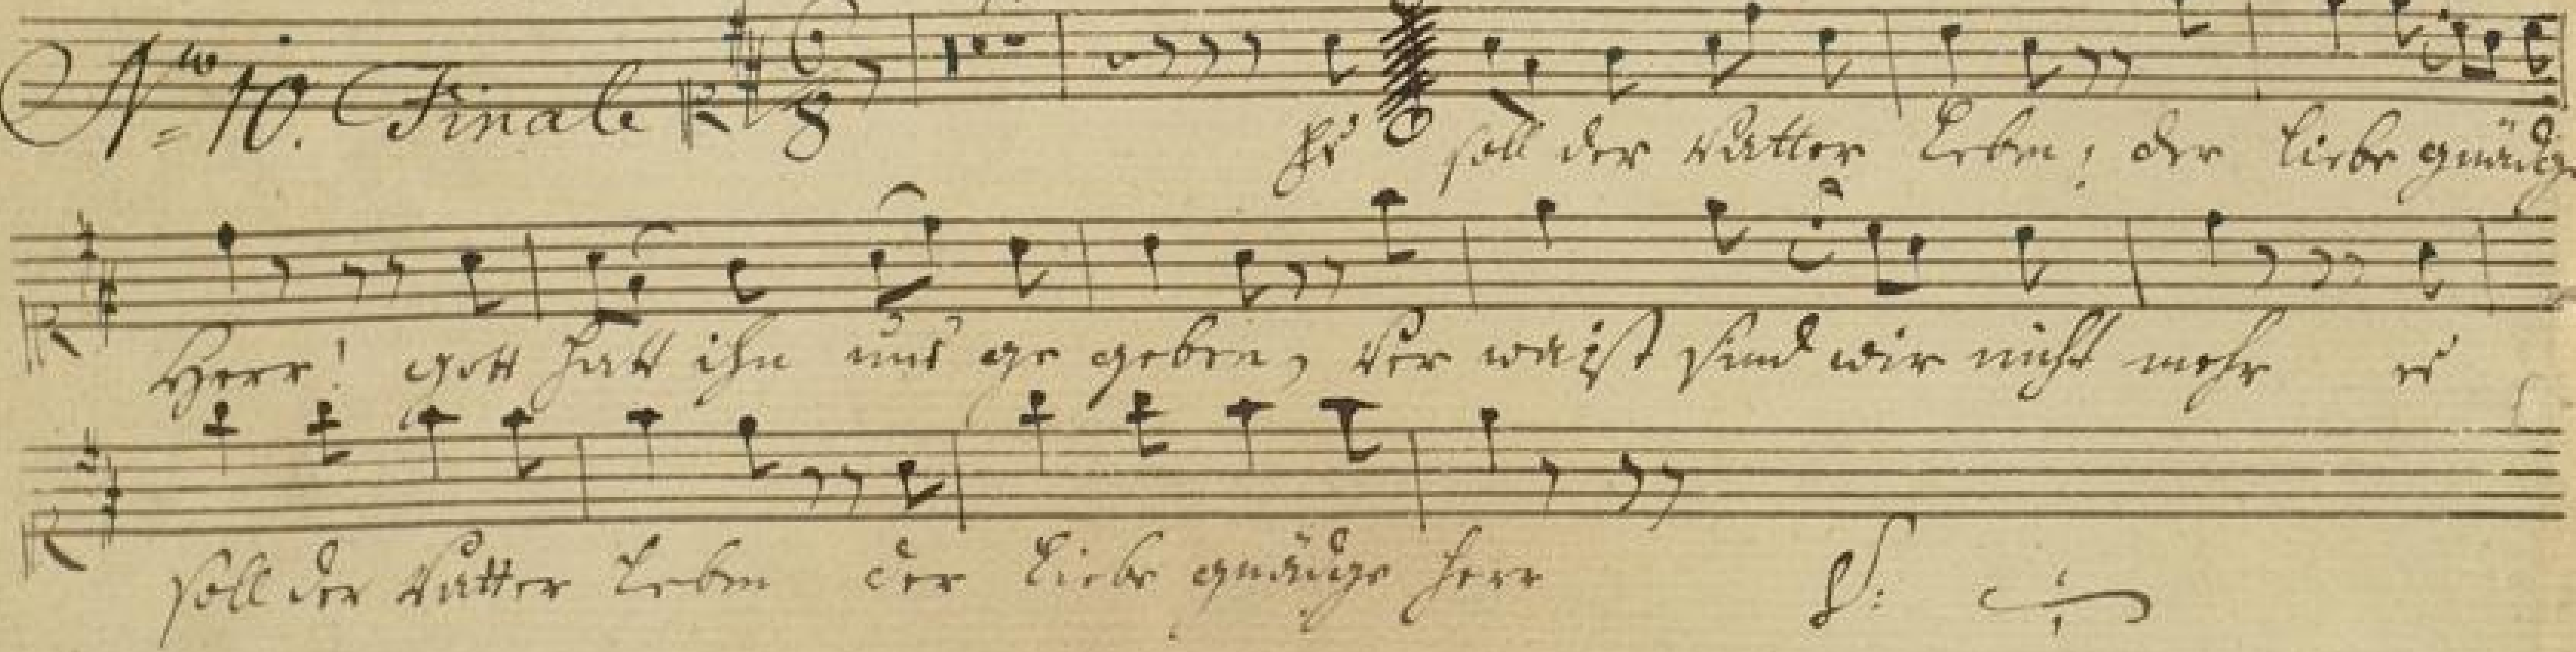 No 10. Finale 6 8
Es soll der Vatter Leben, der liebe gnädge
Herr! gott hatt ihn uns ge geben, Ver waist sind wir nicht mehr es
soll der Vatter Leben der liebe gnädge Herr